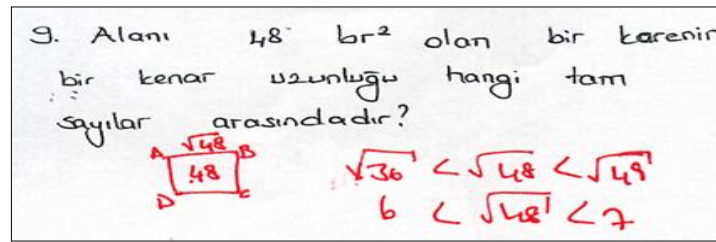 9. Alanı 48 br² olan bir karenin
bir kenar uzunluğu hangi tam
sayılar arasındadır?
√48
A B
48
D C
√36 < √48 < √49
6 < √48 < 7